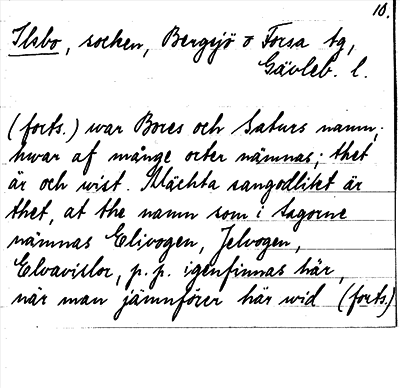 10.
Ilsbo, socken, Bergsjö o Forsa tg,
Gävleb. l.
(forts.) war Bores och Saturs namn,
hwar af månge orter nämnas; thet
är och wist. Mächta sangodlikt är
thet, at the namn som i Sagorne
nämnas Elivogen, Jelvogen,
Elvavislor, p. p. igenfinnas här,
när man jämnförer här wid (forts.)